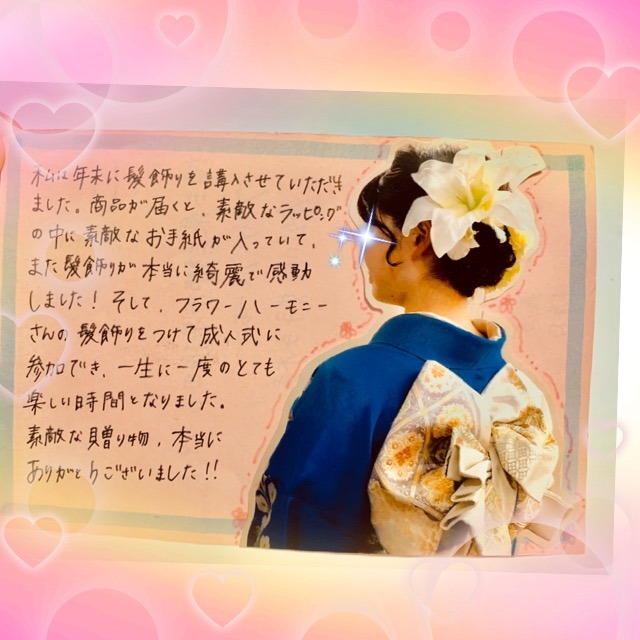 私は年末に髪飾りを購入させていただき
ました。商品が届くと、素敵なラッピング
の中に素敵なお手紙が入っていて、
また髪飾りが本当に綺麗で感動
しました！そして、フラワーハーモニー
さんの髪飾りをつけて成人式に
参加でき、一生に一度のとても
楽しい時間となりました。
素敵な贈り物、本当に
ありがとうございました!!